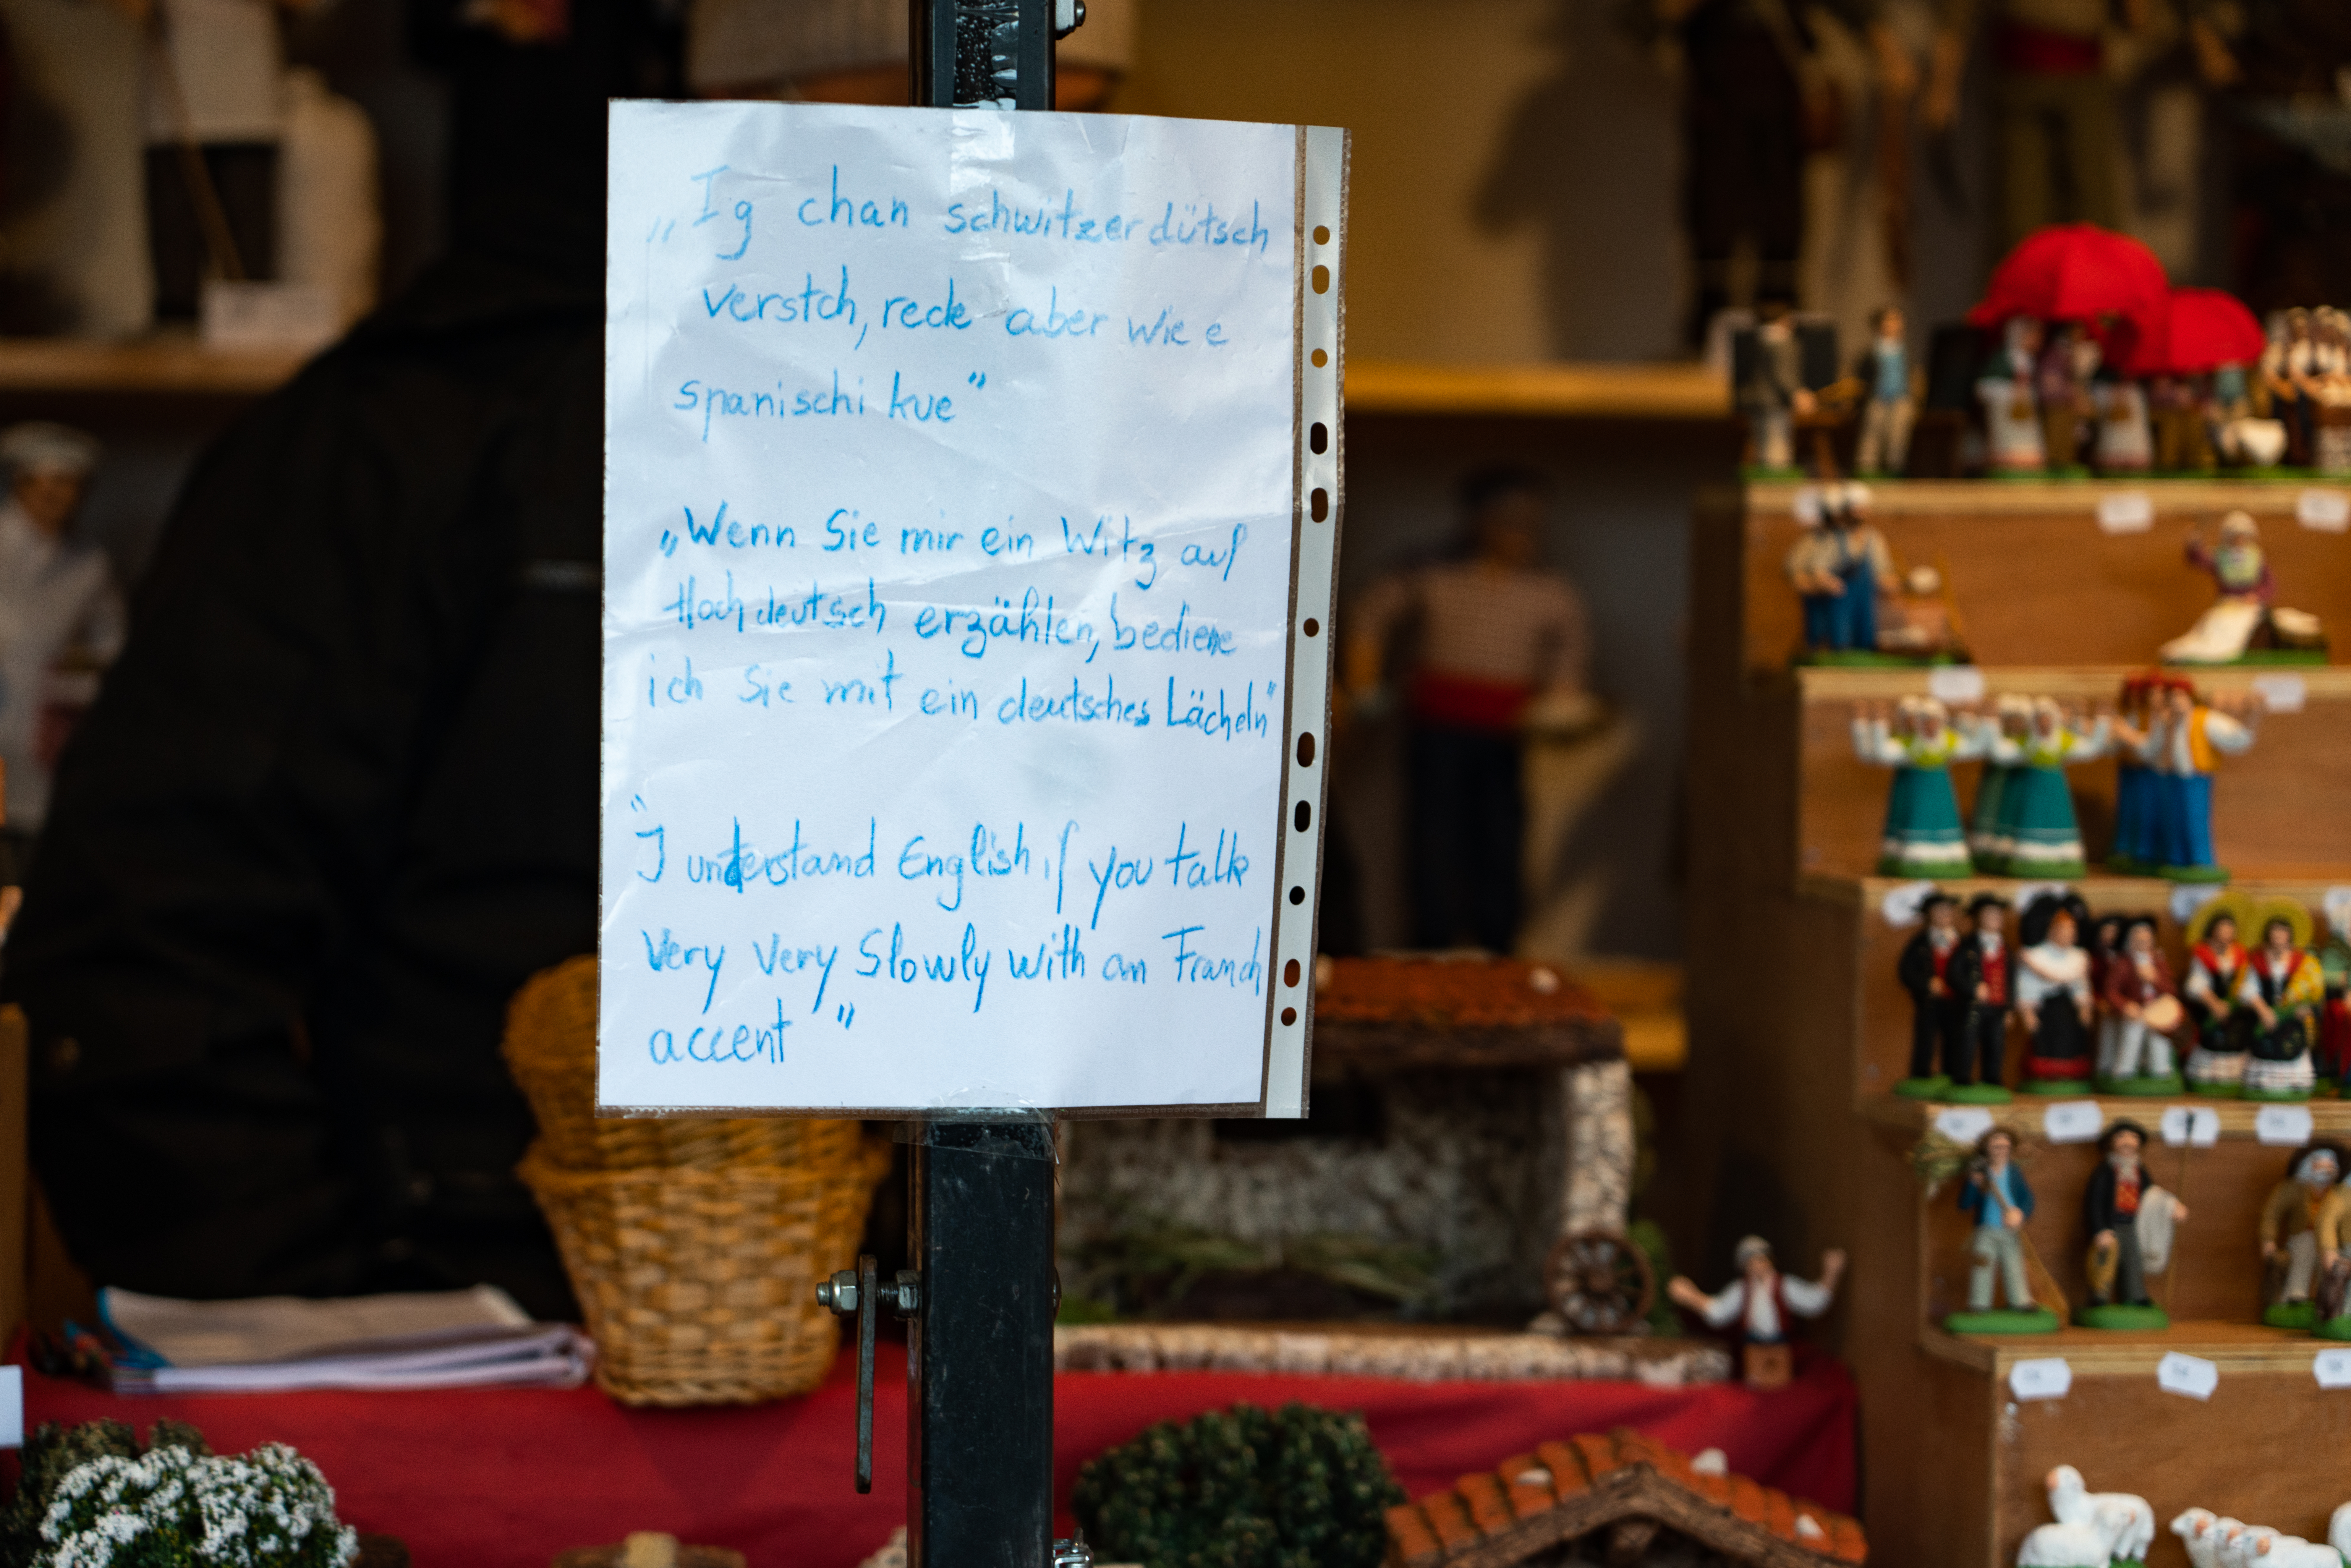 „Ig chan schwitzerdütsch
verstch, rede aber wie e
spanischi kue"
„Wenn Sie mir ein Witz auf
Hochdeutsch erzählen, bediene
ich Sie mit ein deutsches Lächeln"
"I understand English if you talk
very very slowly with an Franch
accent"